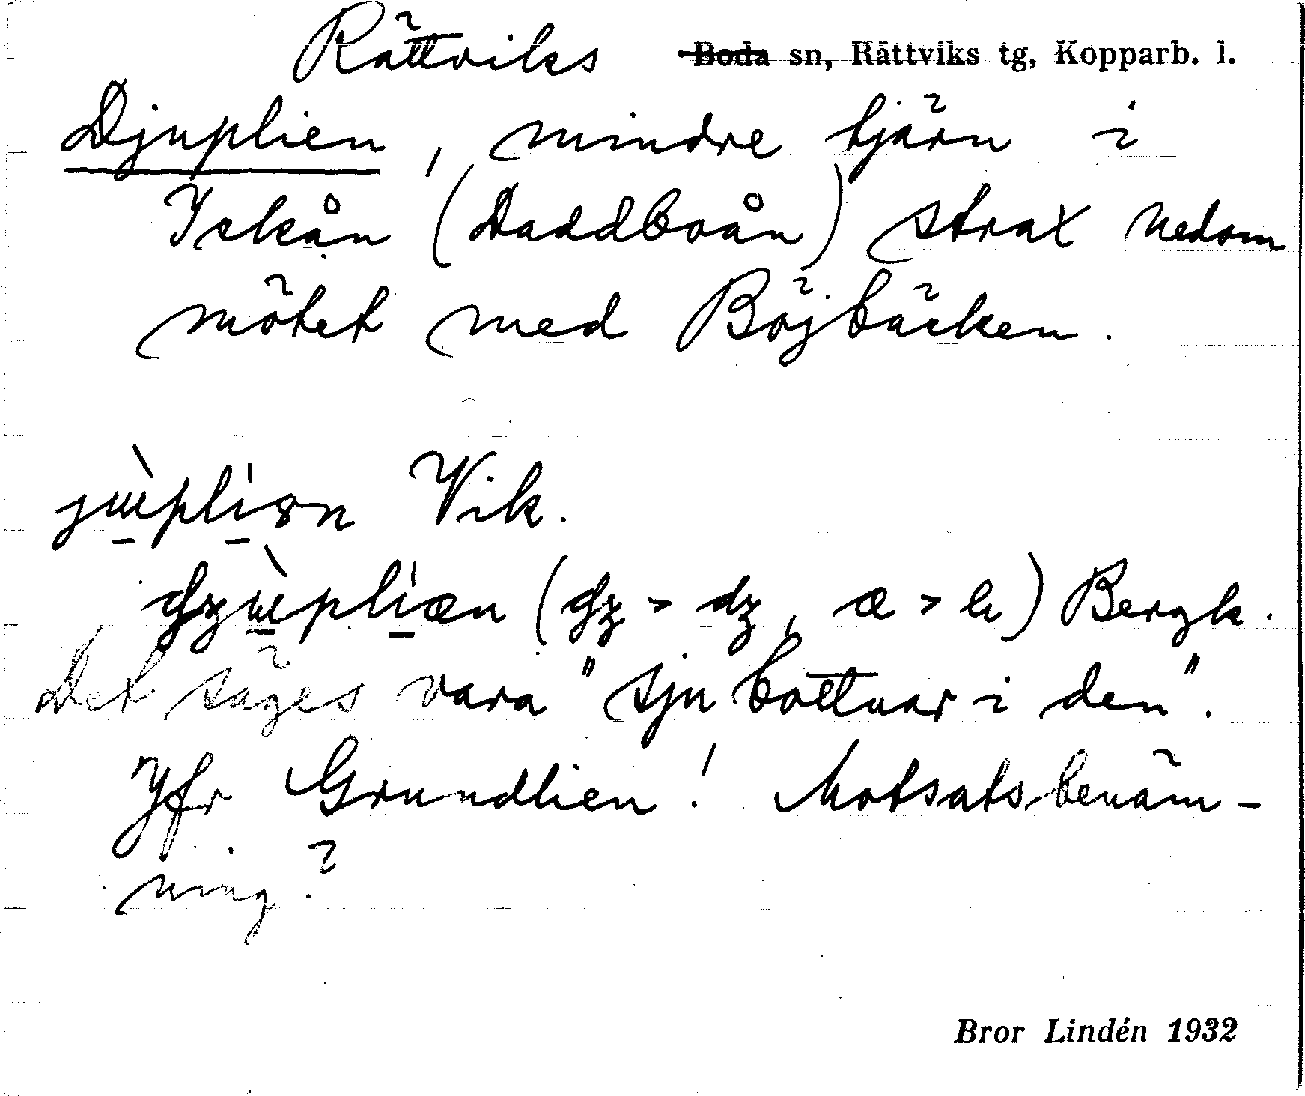 Rättviks Boda sn, Rättviks tg, Kopparb. l.
Djuplien, mindre tjärn i
Ickån (Daddboån) strax nedom
mötet med Böjbäcken.
Vik.
Bergk.
Det säges vara "sju bottnar i den".
Jfr Grundlien! Motsatsbenäm-
ning?
Bror Lindén 1932